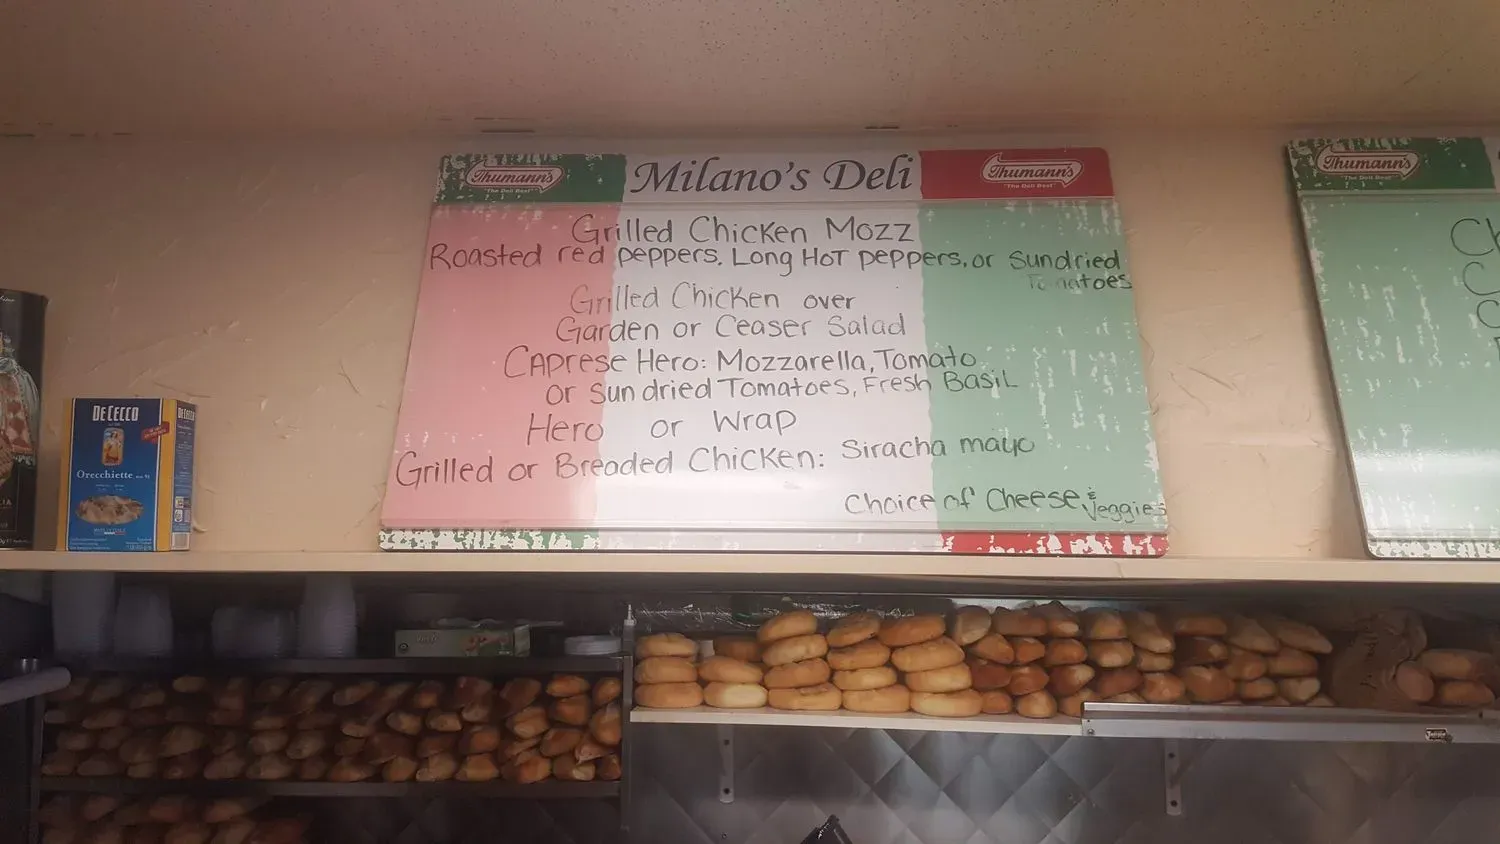 Thumann's
"The Deli Best"
Milano's Deli
Thumann's
"The Deli Best"
Grilled Chicken Mozz
Roasted red peppers. Long Hot peppers, or Sundried
Tomatoes
Grilled Chicken over
Garden or Ceaser Salad
Caprese Hero: Mozzarella, Tomato
or Sun dried Tomatoes, Fresh Basil
Hero or Wrap
Grilled or Breaded Chicken: Siracha mayo
Choice of Cheese & Veggies
Thumann's
"The Deli Best"
DE CECCO
DE CECCO
Orecchiette